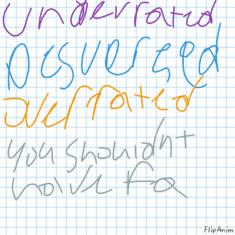 underrated
Desverged
overrated
You shouldn't
haive Fa
FlipAnim